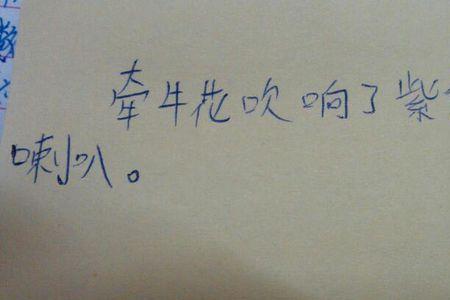 牵牛花吹响了紫
喇叭。